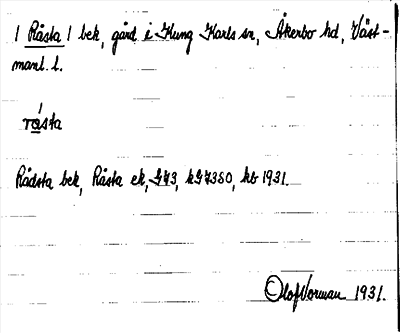 | Råsta | bek, gård i Kung Karls sn, Åkerbo hd, Väst-
manl. l.
rǻsta
Rådsta bek, Råsta ek, G43, kG4350, kb 1931.
Olof Norman 1931.